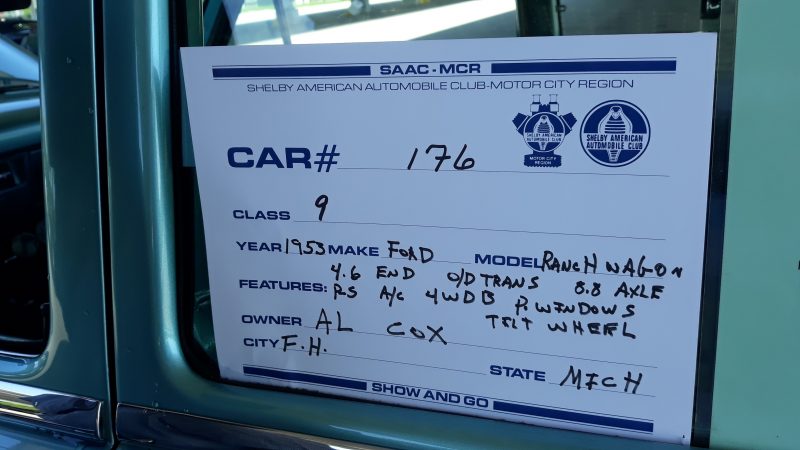 SAAC-MCR
SHELBY AMERICAN AUTOMOBILE CLUB-MOTOR CITY REGION
SHELBY AMERICAN AUTOMOBILE CLUB
MOTOR CITY REGION
SHELBY AMERICAN AUTOMOBILE CLUB
CAR# 176
CLASS 9
YEAR 1953 MAKE FORD MODEL RANCH WAGON
4.6 END O/D TRANS 8.8 AXLE
FEATURES: PS A/C 4WDB P. WINDOWS
TILT WHEEL
OWNER AL COX
CITY F.H.
STATE MICH
SHOW AND GO